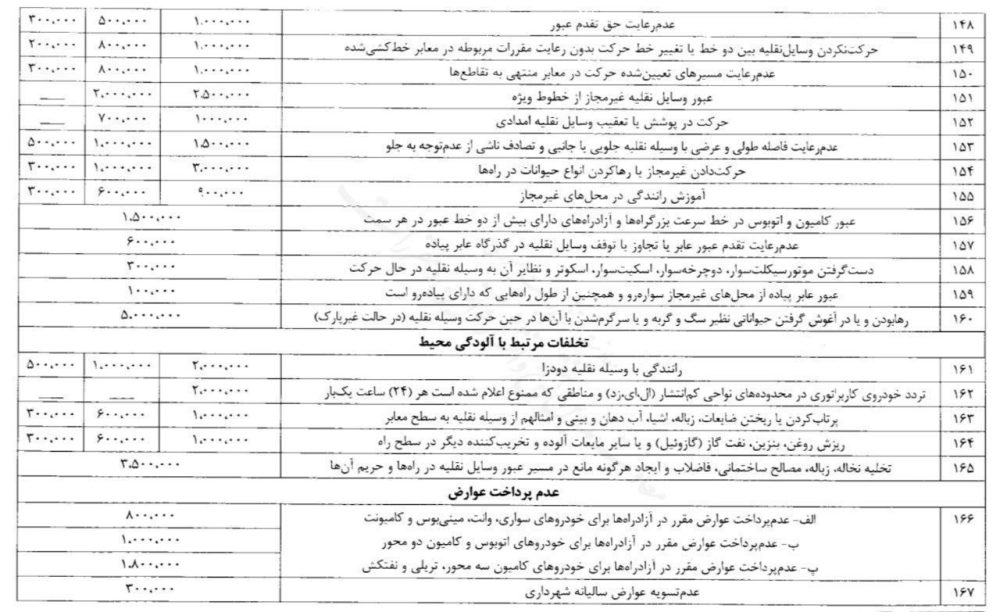 ۱۴۸ عدم‌رعایت حق تقدم عبور ۱،۰۰۰،۰۰۰ ۵۰۰،۰۰۰ ۳۰۰،۰۰۰
۱۴۹ حرکت‌نکردن وسایل‌نقلیه بین دو خط یا تغییر خط حرکت بدون رعایت مقررات مربوطه در معابر خط‌کشی‌شده ۱،۰۰۰،۰۰۰ ۸۰۰،۰۰۰ ۲۰۰،۰۰۰
۱۵۰ عدم‌رعایت مسیرهای تعیین‌شده حرکت در معابر منتهی به تقاطع‌ها ۱،۰۰۰،۰۰۰ ۸۰۰،۰۰۰ ۳۰۰،۰۰۰
۱۵۱ عبور وسایل نقلیه غیرمجاز از خطوط ویژه ۲،۵۰۰،۰۰۰ ۲،۰۰۰،۰۰۰ —
۱۵۲ حرکت در پوشش یا تعقیب وسایل نقلیه امدادی ۱۰۰۰،۰۰۰ ۷۰۰،۰۰۰ —
۱۵۳ عدم‌رعایت فاصله طولی و عرضی با وسیله نقلیه جلویی یا جانبی و تصادف ناشی از عدم‌توجه به جلو ۱،۵۰۰،۰۰۰ ۱،۰۰۰،۰۰۰ ۵۰۰،۰۰۰
۱۵۴ حرکت‌دادن غیرمجاز یا رهاکردن انواع حیوانات در راه‌ها ۳،۰۰۰،۰۰۰ ۱،۰۰۰،۰۰۰ ۳۰۰،۰۰۰
۱۵۵ آموزش رانندگی در محل‌های غیرمجاز ۹۰۰،۰۰۰ ۶۰۰،۰۰۰ ۳۰۰،۰۰۰
۱۵۶ عبور کامیون و اتوبوس در خط سرعت بزرگراه‌ها و آزادراه‌های دارای بیش از دو خط عبور در هر سمت ۱،۵۰۰،۰۰۰
۱۵۷ عدم‌رعایت تقدم عبور عابر یا تجاوز یا توقف وسایل نقلیه در گذرگاه عابر پیاده ۶۰۰،۰۰۰
۱۵۸ دست‌گرفتن موتورسیکلت‌سوار، دوچرخه‌سوار، اسکیت‌سوار، اسکوتر و نظایر آن به وسیله نقلیه در حال حرکت ۳۰۰،۰۰۰
۱۵۹ عبور عابر پیاده از محل‌های غیرمجاز سواره‌رو و همچنین از طول راه‌هایی که دارای پیاده‌رو است ۱۰۰،۰۰۰
۱۶۰ رهابودن و یا در آغوش گرفتن حیواناتی نظیر سگ و گربه و یا سرگرم‌شدن با آن‌ها در حین حرکت وسیله نقلیه (در حالت غیرپارک) ۵،۰۰۰،۰۰۰
تخلفات مرتبط با آلودگی محیط
۱۶۱ رانندگی با وسیله نقلیه دودزا ۲،۰۰۰،۰۰۰ ۱،۰۰۰،۰۰۰ ۵۰۰،۰۰۰
۱۶۲ تردد خودروی کاربراتوری در محدوده‌های نواحی کم‌انتشار (ال.ای.زد) و مناطقی که ممنوع اعلام شده است هر (۲۴) ساعت یک‌بار ۲،۰۰۰،۰۰۰ — —
۱۶۳ پرتاب‌کردن یا ریختن ضایعات، زباله، اشیا، آب دهان و بینی و امثالهم از وسیله نقلیه به سطح معابر ۱،۰۰۰،۰۰۰ ۶۰۰،۰۰۰ ۳۰۰،۰۰۰
۱۶۴ ریزش روغن، بنزین، نفت گاز (گازوئیل) و یا سایر مایعات آلوده و تخریب‌کننده دیگر در سطح راه ۱،۰۰۰،۰۰۰ ۶۰۰،۰۰۰ ۳۰۰،۰۰۰
۱۶۵ تخلیه نخاله، زباله، مصالح ساختمانی، فاضلاب و ایجاد هرگونه مانع در مسیر عبور وسایل نقلیه در راه‌ها و حریم آن‌ها ۳،۵۰۰،۰۰۰
عدم پرداخت عوارض
۱۶۶ الف- عدم‌پرداخت عوارض مقرر در آزادراه‌ها برای خودروهای سواری، وانت، مینی‌بوس و کامیونت ۸۰۰،۰۰۰
ب- عدم‌پرداخت عوارض مقرر در آزادراه‌ها برای خودروهای اتوبوس و کامیون دو محور ۱،۰۰۰،۰۰۰
پ- عدم‌پرداخت عوارض مقرر در آزادراه‌ها برای خودروهای کامیون سه محور، تریلی و نفتکش ۱،۸۰۰،۰۰۰
۱۶۷ عدم‌تسویه عوارض سالیانه شهرداری ۳۰۰،۰۰۰